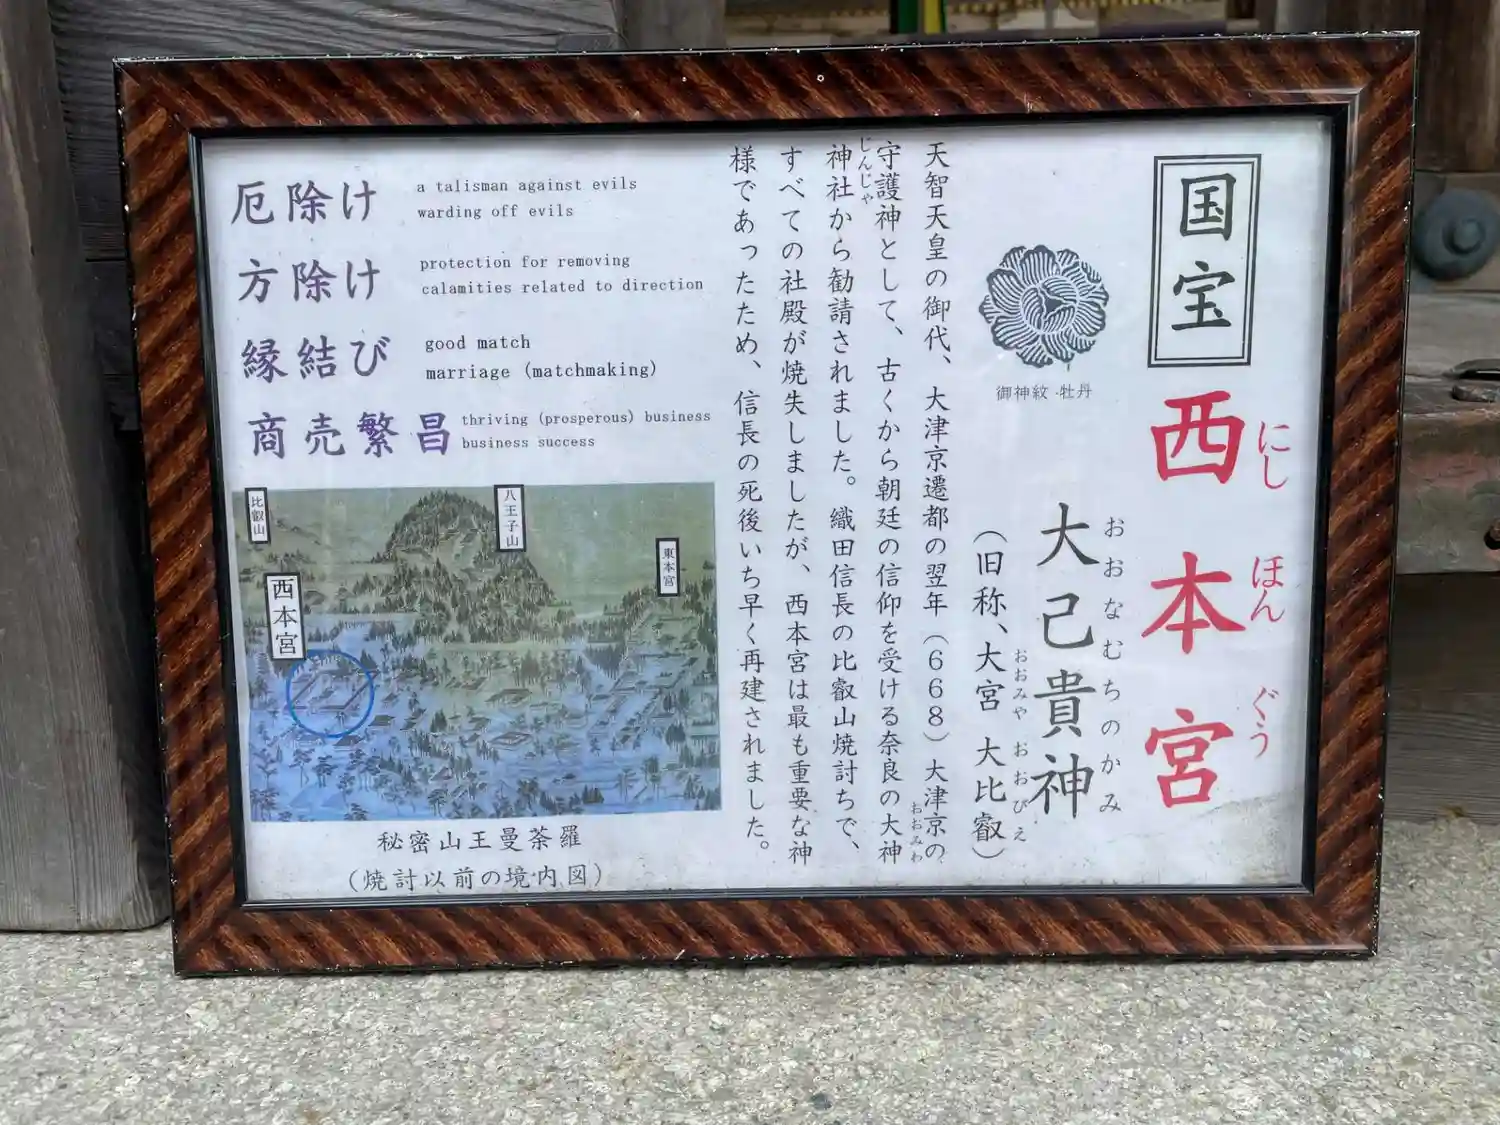 国宝
西本宮
にし ほん ぐう
御神紋・牡丹
大己貴神
おおなむちのかみ
（旧称、大宮 大比叡）
おおみや おおびえ
天智天皇の御代、大津京遷都の翌年（６６８）大津京の
守護神として、古くから朝廷の信仰を受ける奈良の大神
おおみわ
神社から勧請されました。織田信長の比叡山焼討ちで、
じんじゃ
すべての社殿が焼失しましたが、西本宮は最も重要な神
様であったため、信長の死後いち早く再建されました。
厄除け
a talisman against evils
warding off evils
方除け
protection for removing
calamities related to direction
縁結び
good match
marriage (matchmaking)
商売繁昌
thriving (prosperous) business
business success
比叡山
八王子山
東本宮
西本宮
秘密山王曼荼羅
（焼討以前の境内図）